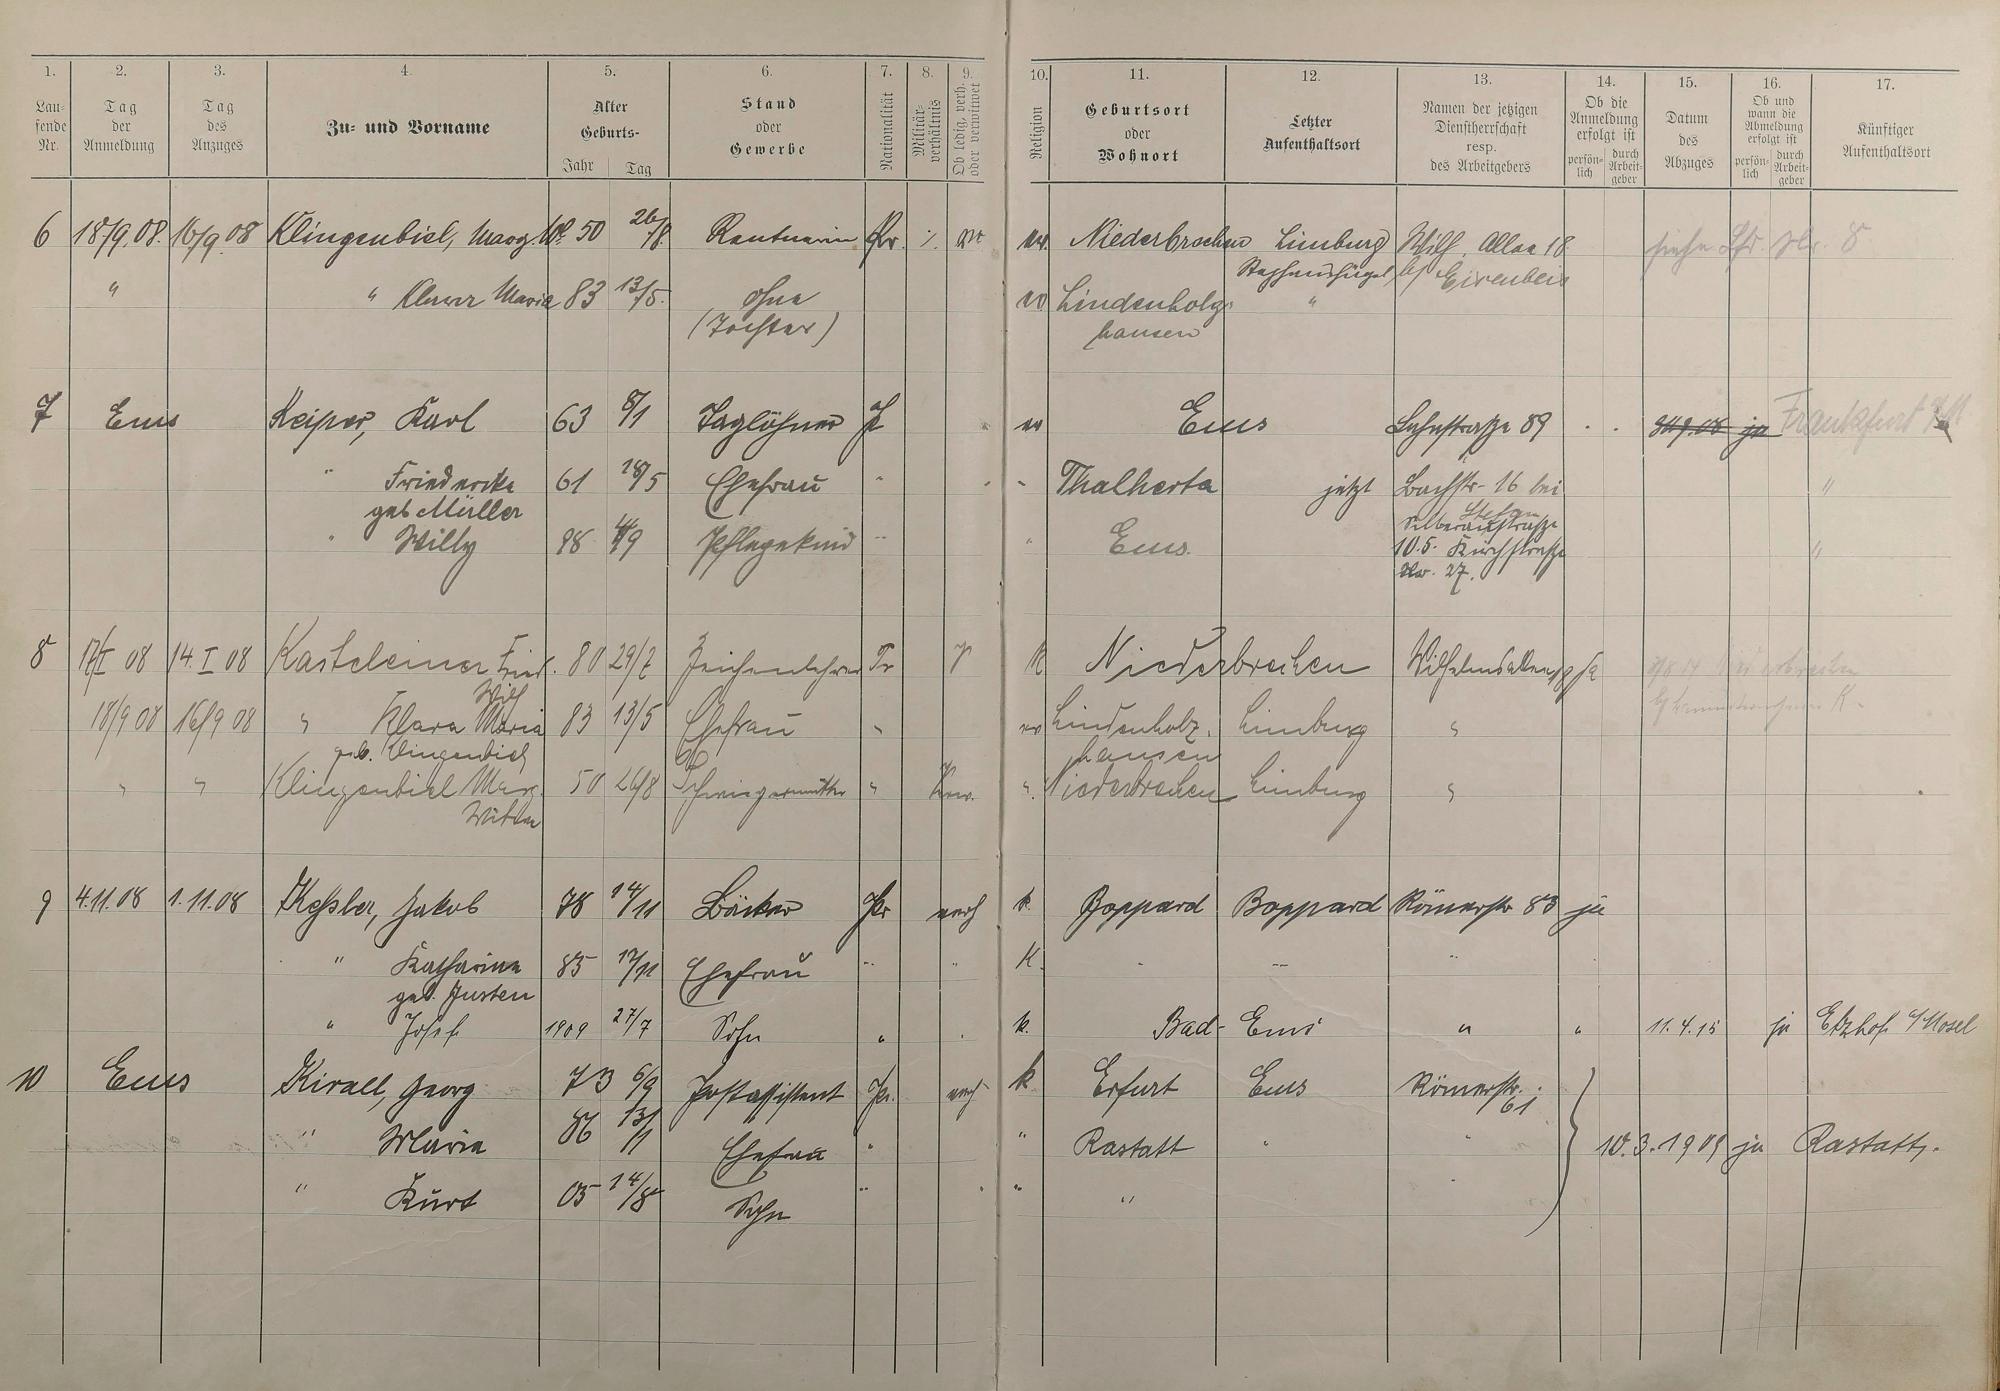 1. 2. 3. 4. 5. 6. 7. 8. 9. 10. 11. 12. 13. 14. 15. 16. 17.
Lau-
fende
Nr.
Tag
der
Anmeldung
Tag
des
Anzuges
Zu- und Vorname
Alter
Geburts-
Jahr Tag
Stand
oder
Gewerbe
Nationalität
Militär-
verhältnis
Ob ledig, verh.
oder verwitwet
Religion
Geburtsort
oder
Wohnort
Letzter
Aufenthaltsort
Namen der jetzigen
Dienstherrschaft
resp.
des Arbeitgebers
Ob die
Anmeldung
erfolgt ist
persön-
lich
durch
Arbeit-
geber
Datum
des
Abzuges
Ob und
wann die
Abmeldung
erfolgt ist
persön-
lich
durch
Arbeit-
geber
Künftiger
Aufenthaltsort
6 18/9 08. 16/9 08 Klingenbiel, Marg. 50 26/8. Rentnerin Pr. ev. Niederbrechen Limburg Wilh. Allee 18 siehe Lfd. Nr. 8
Stephanshügel
" " Clara Maria 83 13/5. ohne ev Lindenholz- "
(Tochter) hausen
7 Ems Keiper, Karl 63 8/1 Taglöhner P ev Ems Lahnstraße 89 ja Frankfurt
" Friedericke 61 18/5 Ehefrau " " jetzt Bachstr. 16 bei "
geb Müller
" Willy 98 Pflegekind " " Ems. Silberaustraße "
10.5. Kirchstraße
Nr. 27.
8 17/I 08 14. I 08 Kasteleiner Fried. 80 29/7 Zeichenlehrer Pr K Niederbrechen Wilhelmsallee ja
Wilh
18/9 08 16/9 08 " Klara Maria 83 13/5 Ehefrau " ev Lindenholz- Limburg "
geb. Klingenbiel hausen
" " Klingenbiel Marg. 50 26/8 Schwiegermutter " " Niederbrechen Limburg "
Witwe
9 4.11.08 1.11.08 Keßler, Jakob 78 14/11 Bäcker Pr verh k. Boppard Boppard Römerstr 83 ja
" Katharina 85 17/11 Ehefrau " " K. " " "
geb. Justen
" Josef 1909 27/7 Sohn " k. Bad-Ems " " 11.4.15 ja Etzhof a/Mosel
10 Ems Kirall, Georg 73 6/9 Postassistent Pr. verh k Erfurt Ems Römerstr. 61
" Maria 86 13/1 Ehefrau " " Rastatt " " 10.3.1909 ja Rastatt.
" Kurt 05 14/8 Sohn " " "